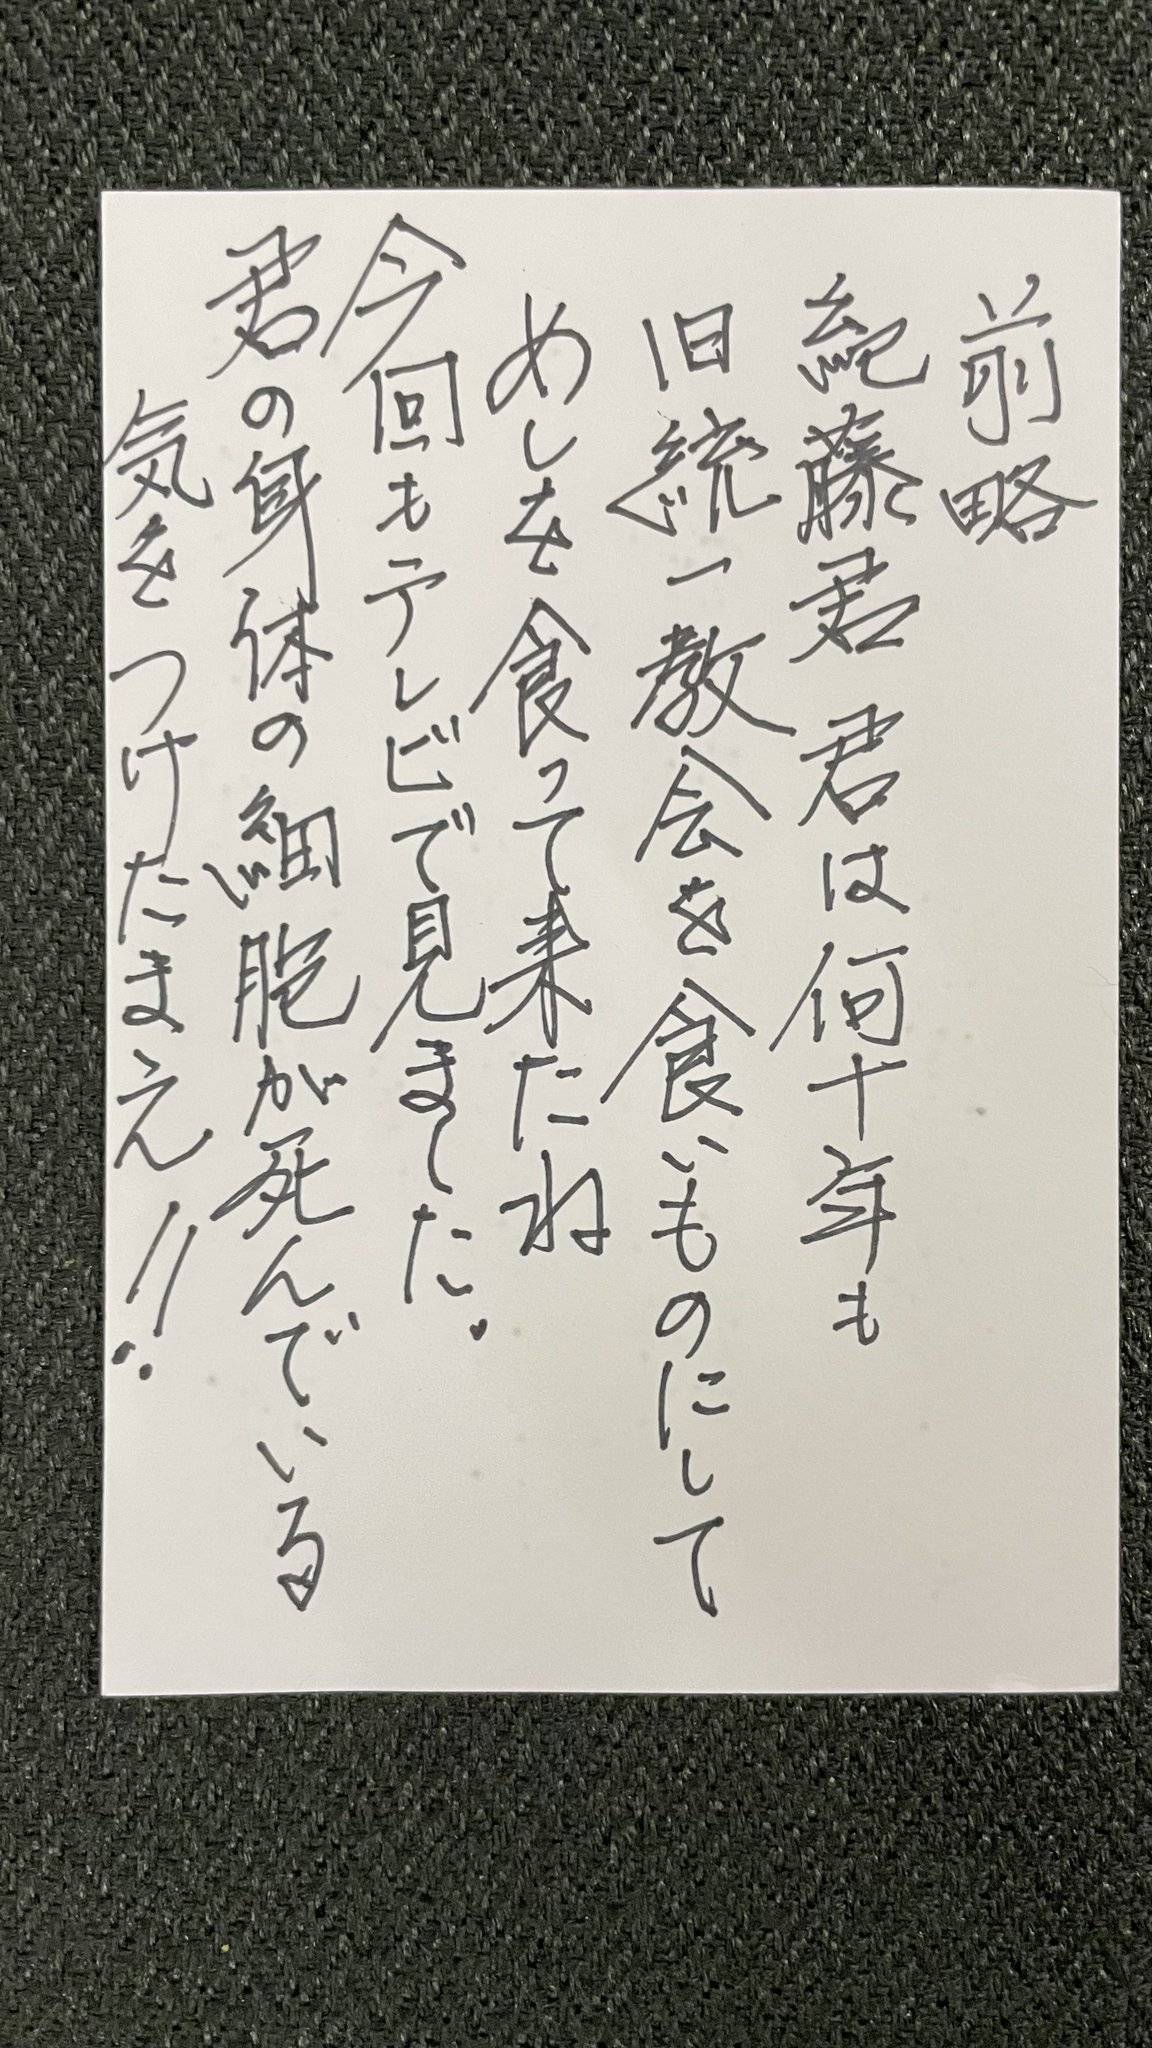 前略
紀藤君 君は何十年も
旧統一教会を食いものにして
めしを食って来たね
今回もテレビで見ました。
君の身体の細胞が死んでいる
気をつけたまえ!!